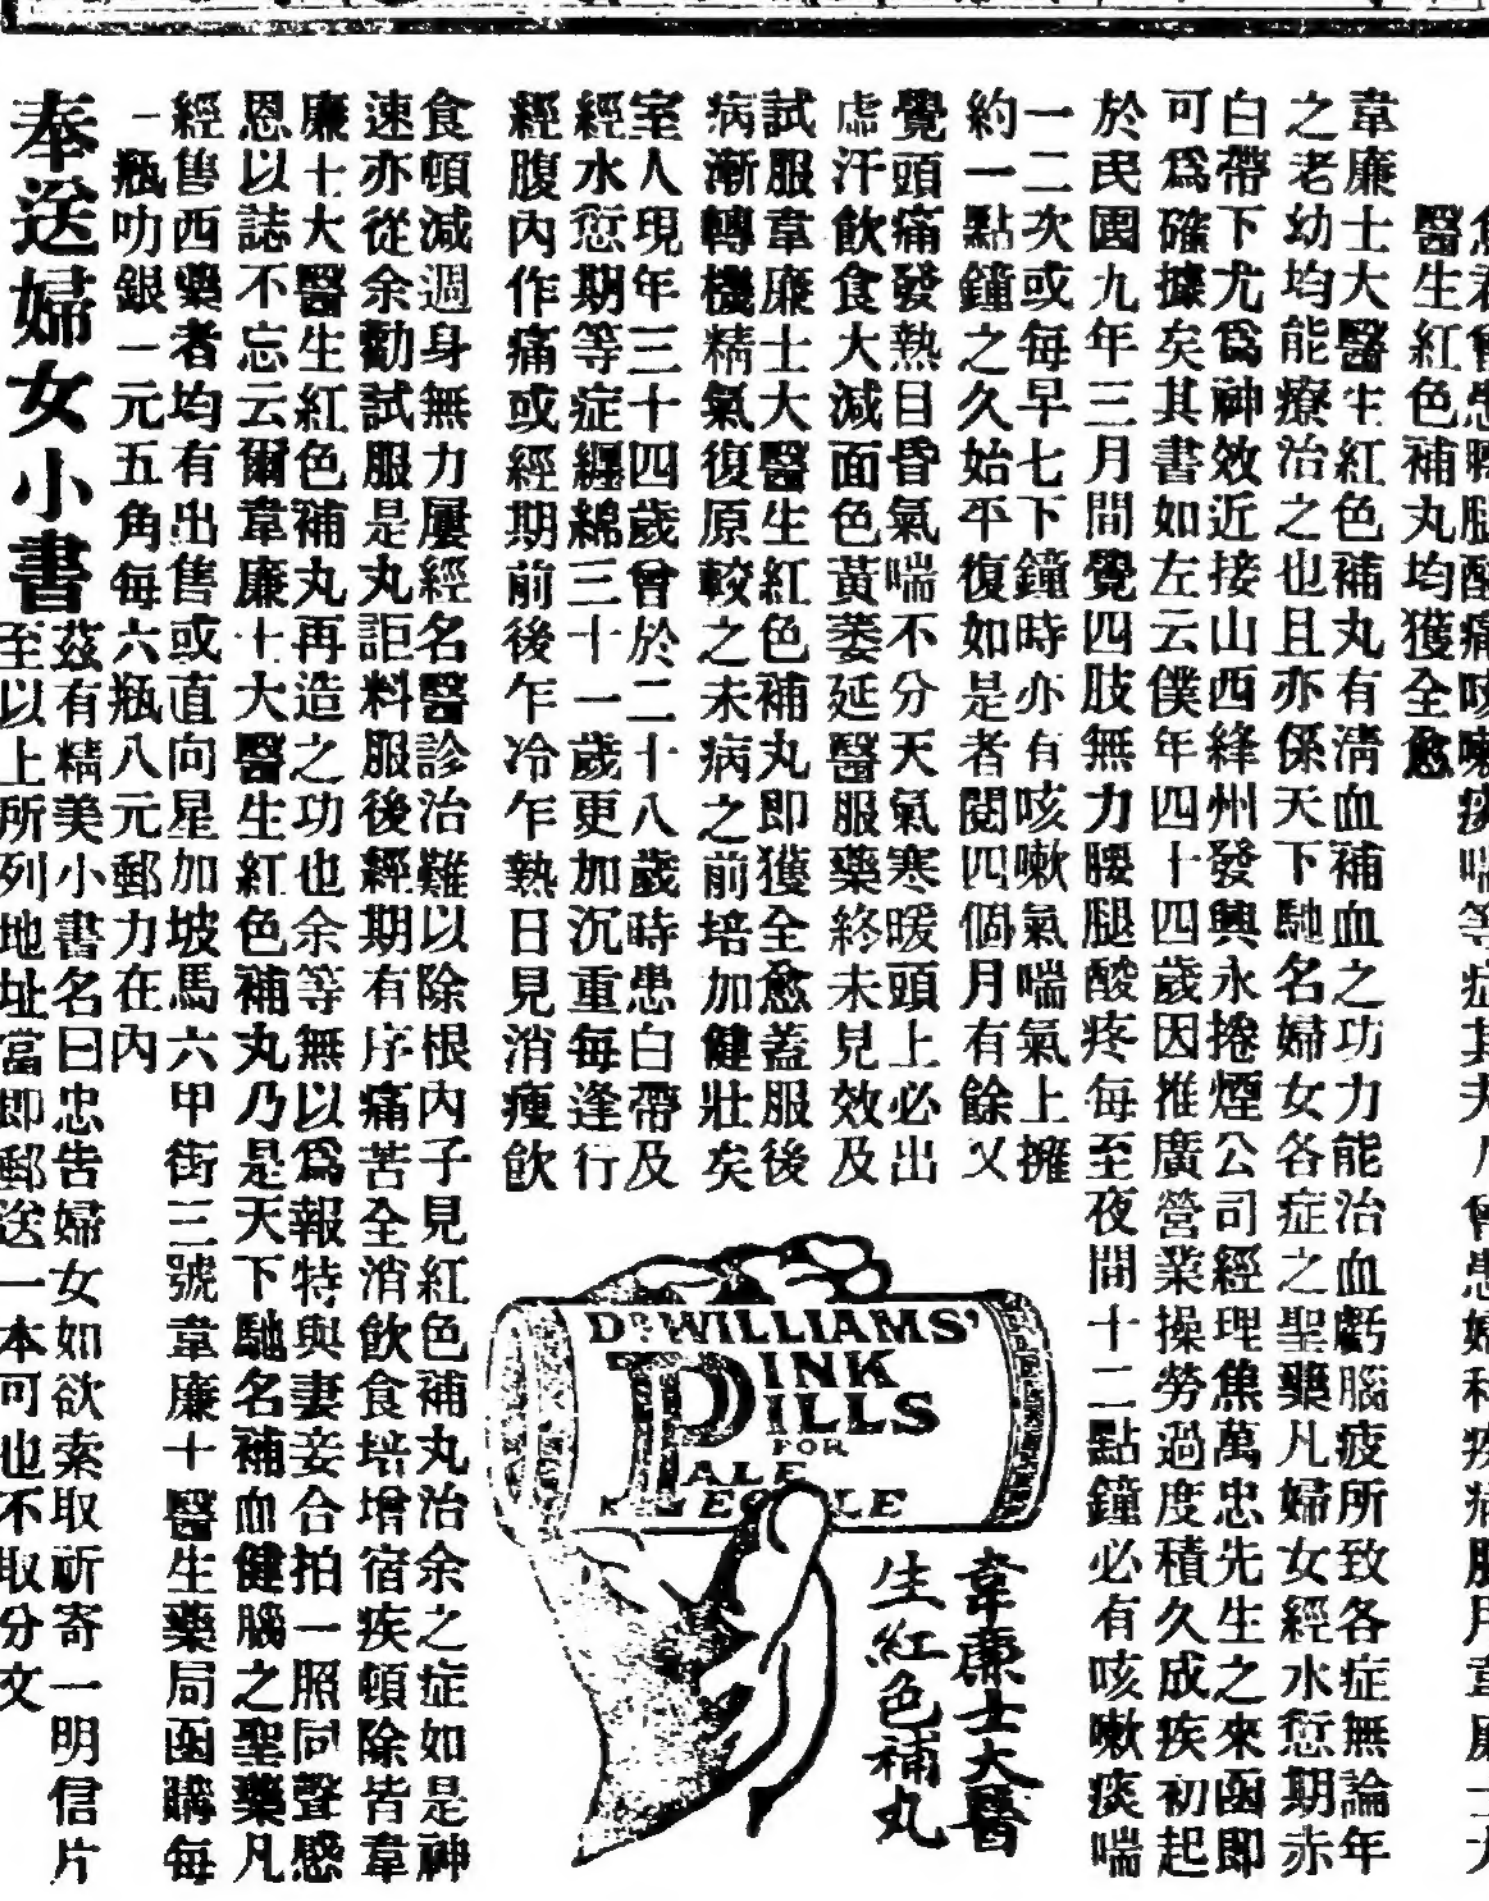 醫生紅色補丸均獲全愈
韋廉士大醫生紅色補丸有清血補血之功力能治血虧腦疲所致各症無論年
之老幼均能療治之也且亦係天下馳名婦女各症之聖藥凡婦女經水愆期赤
白帶下尤爲神效近接山西絳州發興永捲煙公司經理焦萬忠先生之來函即
可爲確據矣其書如左云僕年四十四歲因推廣營業操勞過度積久成疾初起
於民國九年三月間覺四肢無力腰腿酸疼每至夜間十二點鐘必有咳嗽痰喘
一二次或每早七下鐘時亦有咳嗽氣喘氣上擁
約一點鐘之久始平復如是者閱四個月有餘又
覺頭痛發熱目昏氣喘不分天氣寒暖頭上必出
虛汗飲食大減面色黃萎延醫服藥終未見效及
試服韋廉士大醫生紅色補丸即獲全愈蓋服後
病漸轉機精氣復原較之未病之前培加健壯矣
室人現年三十四歲曾於二十八歲時患白帶及
經水愆期等症纏綿三十一歲更加沉重每逢行
經腹內作痛或經期前後乍冷乍熱日見消瘦飲
DR. WILLIAMS'
PINK
PILLS
FOR
PALE
PEOPLE
韋廉士大醫
生紅色補丸
食頓減週身無力屢經名醫診治難以除根內子見紅色補丸治余之症如是神
速亦從余勸試服是丸詎料服後經期有序痛苦全消飲食培增宿疾頓除皆韋
廉士大醫生紅色補丸再造之功也余等無以爲報特與妻妾合拍一照同聲感
恩以誌不忘云爾韋廉士大醫生紅色補丸乃是天下馳名補血健腦之聖藥凡
經售西藥者均有出售或直向星加坡馬六甲街三號韋廉士醫生藥局函購每
一瓶叻銀一元五角每六瓶八元郵力在內
奉送婦女小書
茲有精美小書名曰忠告婦女如欲索取祈寄一明信片
至以上所列地址當即郵送一本可也不取分文